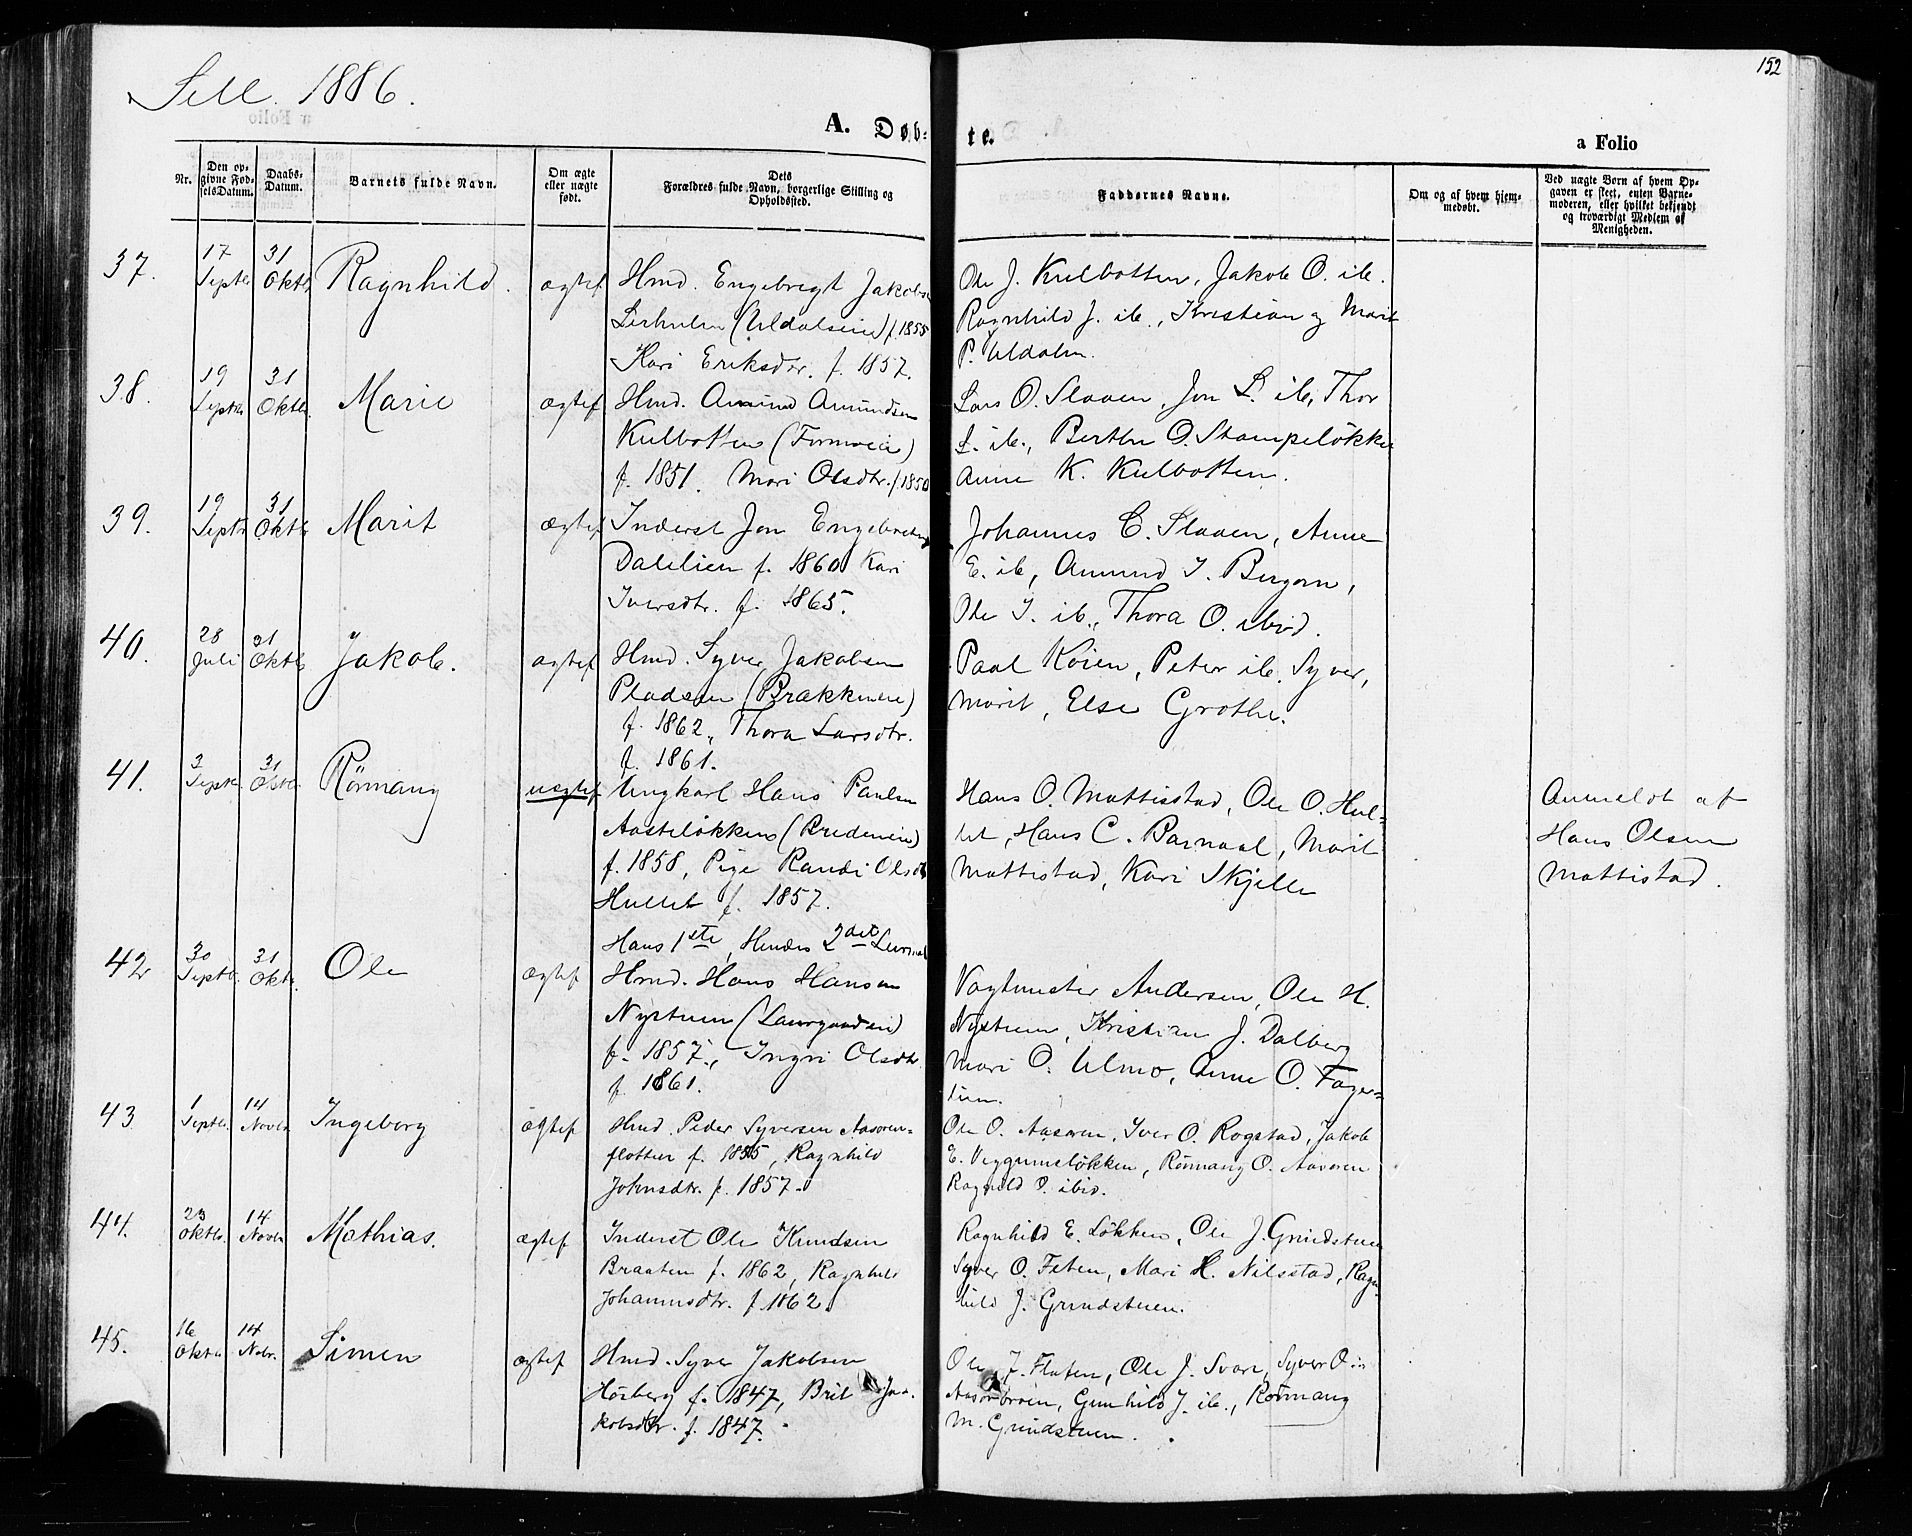 Sell. 1886.
152
A. Døb-
te.
a Folio
Nr.
Den opgivne FødselsDatum.
Daabs-Datum.
Barnets fulde Navn.
Om ægte eller uægte født.
Dets Forældres fulde Navn, borgerlige Stilling og Opholdssted.
Faddernes Navne.
Om og af hvem hjemmedøbt.
Ved uægte Born af hvem Opgaven er skeet, enten Barnemoderen, eller hvilket bekjendt og troværdigt Medlem af Menigheden.
37. 17 Septb. 31 Oktb. Ragnhild. ægtef Hmd. Engebregt Jakobs
(Uldalseie) f. 1855
Kari Eriksdtr. f. 1857.
Ole J. Kulbotten, Jakob O. ib.
Ragnhild J. ib., Kristian og Marit
P. Uldalen.
38. 19 Septb. 31 Oktb. Marie ægtef Hmd. Amund Amundsen
Kulbotten (Formoeie)
f. 1851. Mari Olsdtr. f. 1850
Lars O. Slaaen, Jon L. ib, Thor
L. ib., Berthe O. Stampeløkke
Anne K. Kulbotten.
39. 19 Septb. 31 Oktb. Marit ægtef Inderst Jon Engebretsen
Dalelien f. 1860 Kari
Iversdtr. f. 1865.
Johannes E. Slaaen, Anne
E. ib, Amund I.
Ole I. ib., Thora O. ibid.
40. 28 Juli 31 Oktb Jakob. ægtef Hmd. Syver Jakobsen
Pladsen (Brækkneie)
f. 1862, Thora Larsdtr.
f. 1861.
Paal Køien, Peter ib. Syver,
Marit, Else Grothe.
41. 3 Septb. 31 Oktb. Rønnaug uægtef Ungkarl Hans Paulsen
Aasteløkken (Bredeneie)
f. 1858, Pige Randi Olsdt
Hullet f. 1857.
Hans 1ste, Hendes 2det Leiermaal
Hans O. Mattisstad, Ole O. Hul-
let, Hans C. Barnaal, Marit
Mattistad, Kari Skjelle
Anmeldt af
Hans Olsen
Mattistad.
42 30 Septb. 31 Oktb. Ole ægtef Hmd. Hans Hansen
Nystuen (Laurgaardseie)
f. 1857, Ingri Olsdtr
f. 1861.
Vagtmester Andersen, Ole H.
Nystuen, Kristian J. Dalberg
Mari O. Ulmo, Anne O. Fager-
lien.
43 1 Septb. 14 Novb. Ingeborg ægtef Hmd. Peder Syversen Aasoren-
flotten f. 1855, Ragnhild
Johnsdtr. f. 1857.
Ole O. Aasoren, Iver O. Rogstad, Jakob
E. Veggumsløkken, Rønnaug O. Aasoren
Ragnild O. ibid.
44. 23 Oktb. 14 Novb. Mathias. ægtef Inderst Ole Knudsen
Braaten f. 1862, Ragnhild
Johannesdtr. f. 1862.
Ragnhild E. Løkken, Ole J. Grindstuen
Syver O. Feten, Mari H. Nilsstad, Ragn
hild J. Grindstuen.
45. 16 Oktb 14 Nvbr. Simen ægtef Hmd. Syver Jakobsen
Høsberg f. 1847, Brit Ja-
kobsdtr. f. 1847.
Ole J. Flaten, Ole J. Svare, Syver O.
Gunhild J. ib., Rønnaug
M. Grindstuen.